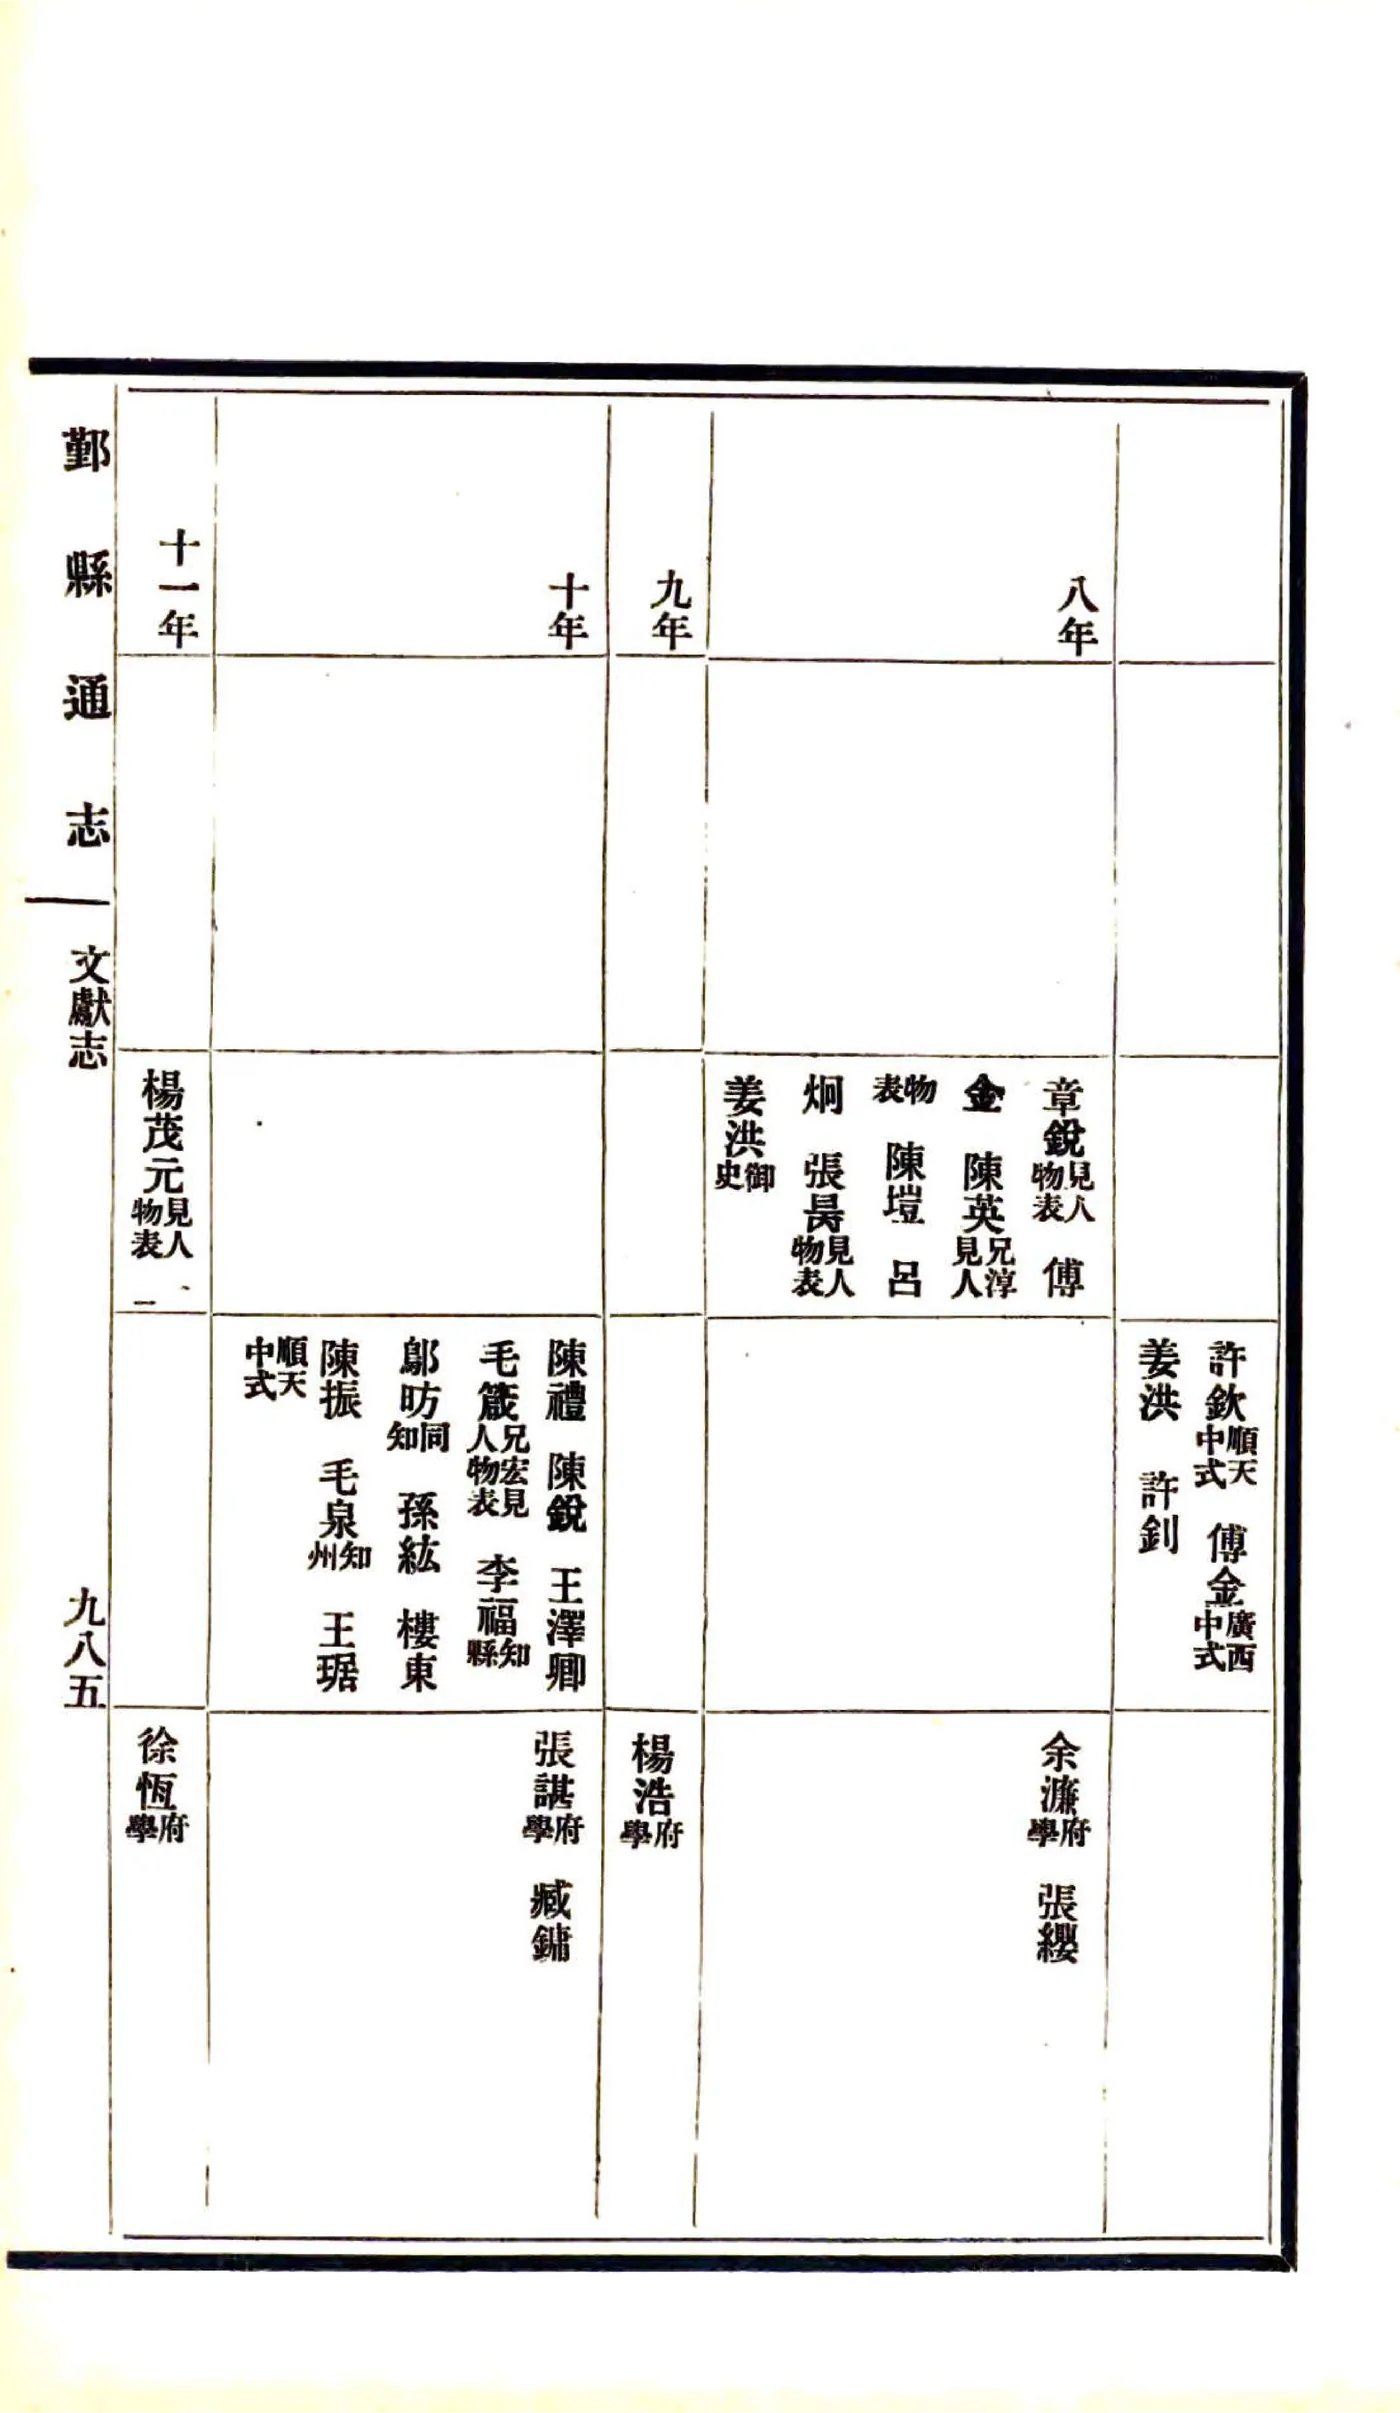 許欽順天中式　傅金廣西中式
姜洪　許釗
八年
章銳見人物表　傅
金　陳英兄淳見人
物表　陳塏　呂
炯　張昺見人物表
姜洪御史
余濂府學　張纓
九年
楊浩府學
十年
陳禮　陳銳　王澤卿
毛箴兄宏見人物表　李福知縣
鄔昉同知　孫紘　樓東
陳振　毛泉知州　王琚
順天中式
張諶府學　臧鏞
十一年
楊茂元見人物表
徐恆府學
鄞縣通志
文獻志
九八五